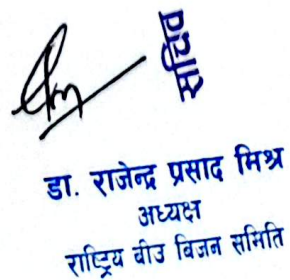 सदस्य
डा. राजेन्द्र प्रसाद मिश्र
अध्यक्ष
राष्ट्रिय बीउ बिजन समिति